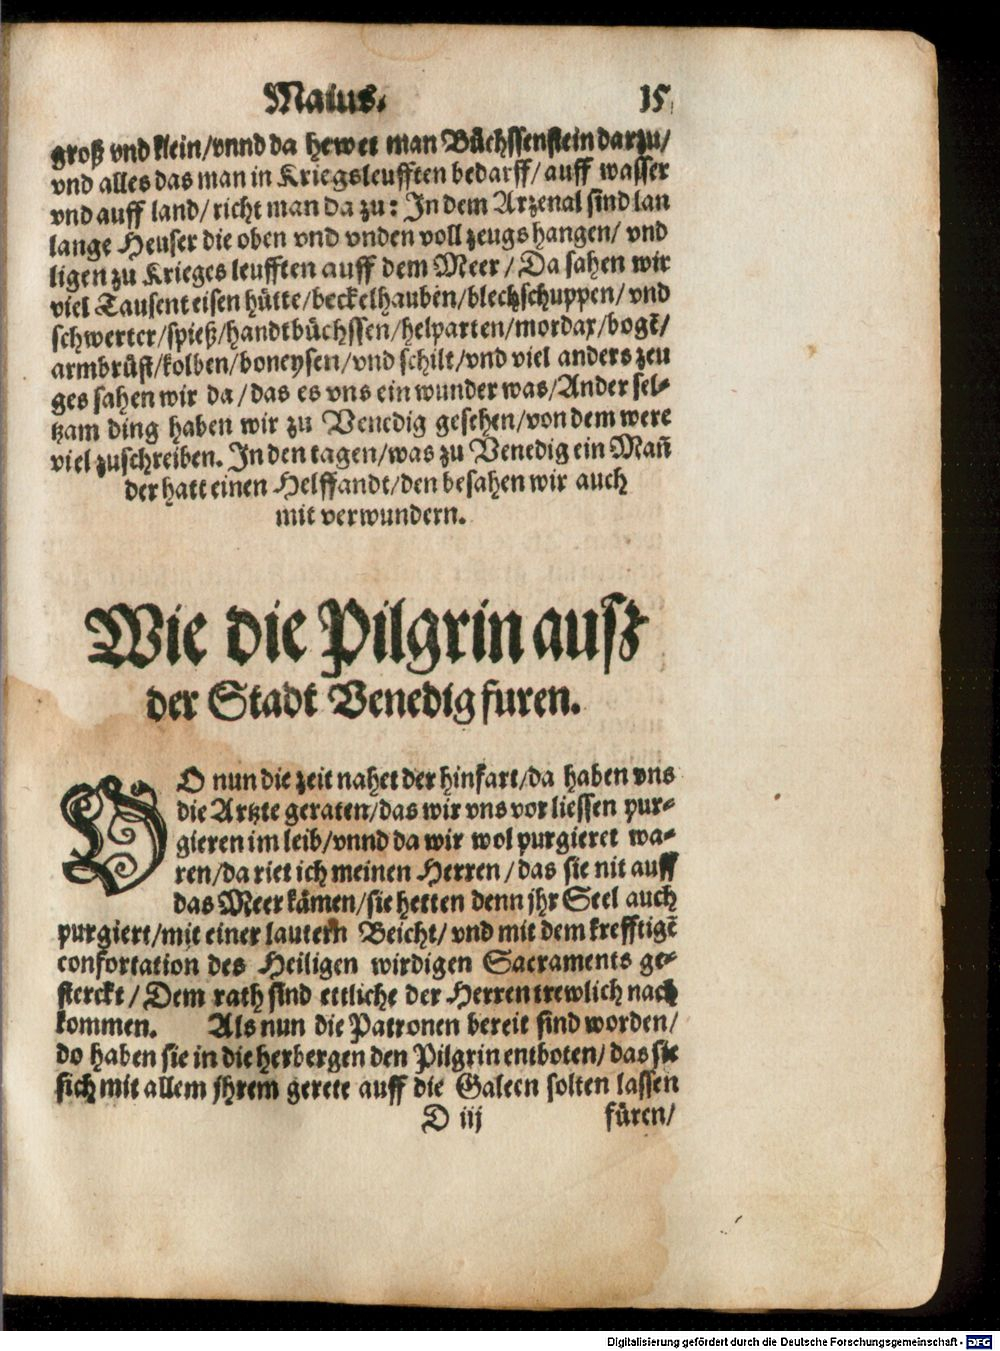 Maius. 15
groß vnd klein/vnnd da hewet man Büchssenstein darzu/
vnd alles das man in Kriegsleufften bedarff/ auff wasser
vnd auff land/ richt man da zu: In dem Arzenal sind lan
lange Heuser die oben vnd vnden voll zeugs hangen/ vnd
ligen zu Krieges leufften auff dem Meer/ Da sahen wir
viel Tausent eisen hütte/beckelhauben/blechschuppen/ vnd
schwerter/spieß/handtbüchssen/helparten/mordax/bogẽ/
armbrüst/kolben/boneysen/vnd schilt/vnd viel anders zeu
ges sahen wir da/ das es vns ein wunder was/Ander sel-
tzam ding haben wir zu Venedig gesehen/von dem were
viel zuschreiben. In den tagen/was zu Venedig ein Mañ
der hatt einen Helffandt/den besahen wir auch
mit verwundern.
Wie die Pilgrin ausz
der Stadt Venedig furen.
DO nun die zeit nahet der hinfart/da haben vns
die Artzte geraten/das wir vns vor liessen pur-
gieren im leib/vnnd da wir wol purgieret wa-
ren/da riet ich meinen Herren/ das sie nit auff
das Meer kämen/sie hetten denn jhr Seel auch
purgiert/mit einer lautern Beicht/ vnd mit dem krefftigẽ
confortation des Heiligen wirdigen Sacraments ge-
sterckt/ Dem rath sind ettliche der Herren trewlich nach
kommen. Als nun die Patronen bereit sind worden/
do haben sie in die herbergen den Pilgrin entboten/ das sie
sich mit allem jhrem gerete auff die Galeen solten lassen
D iij füren/
Digitalisierung gefördert durch die Deutsche Forschungsgemeinschaft - DFG